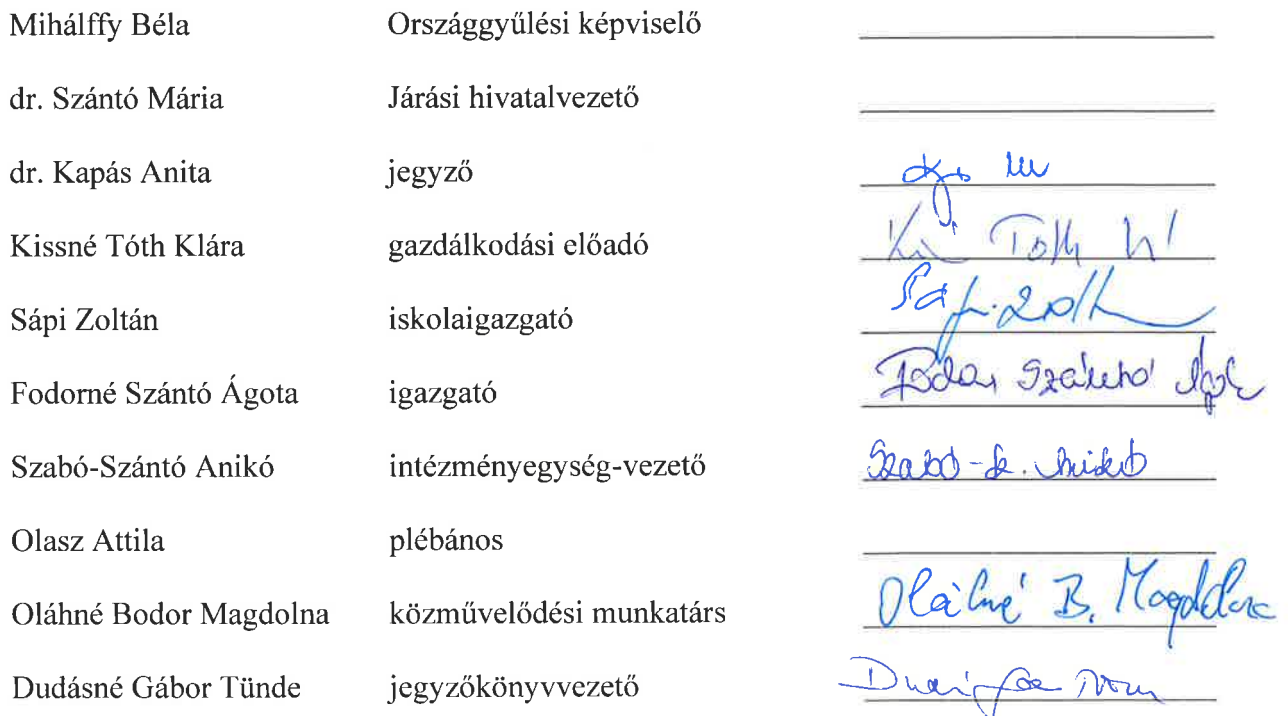 Mihálffy Béla Országgyűlési képviselő
dr. Szántó Mária Járási hivatalvezető
dr. Kapás Anita jegyző
Kissné Tóth Klára gazdálkodási előadó Tóth
Sápi Zoltán iskolaigazgató
Fodorné Szántó Ágota igazgató Szántó
Szabó-Szántó Anikó intézményegység-vezető Szabó-Sz. Anikó
Olasz Attila plébános
Oláhné Bodor Magdolna közművelődési munkatárs Oláhné B. Magdolna
Dudásné Gábor Tünde jegyzőkönyvvezető